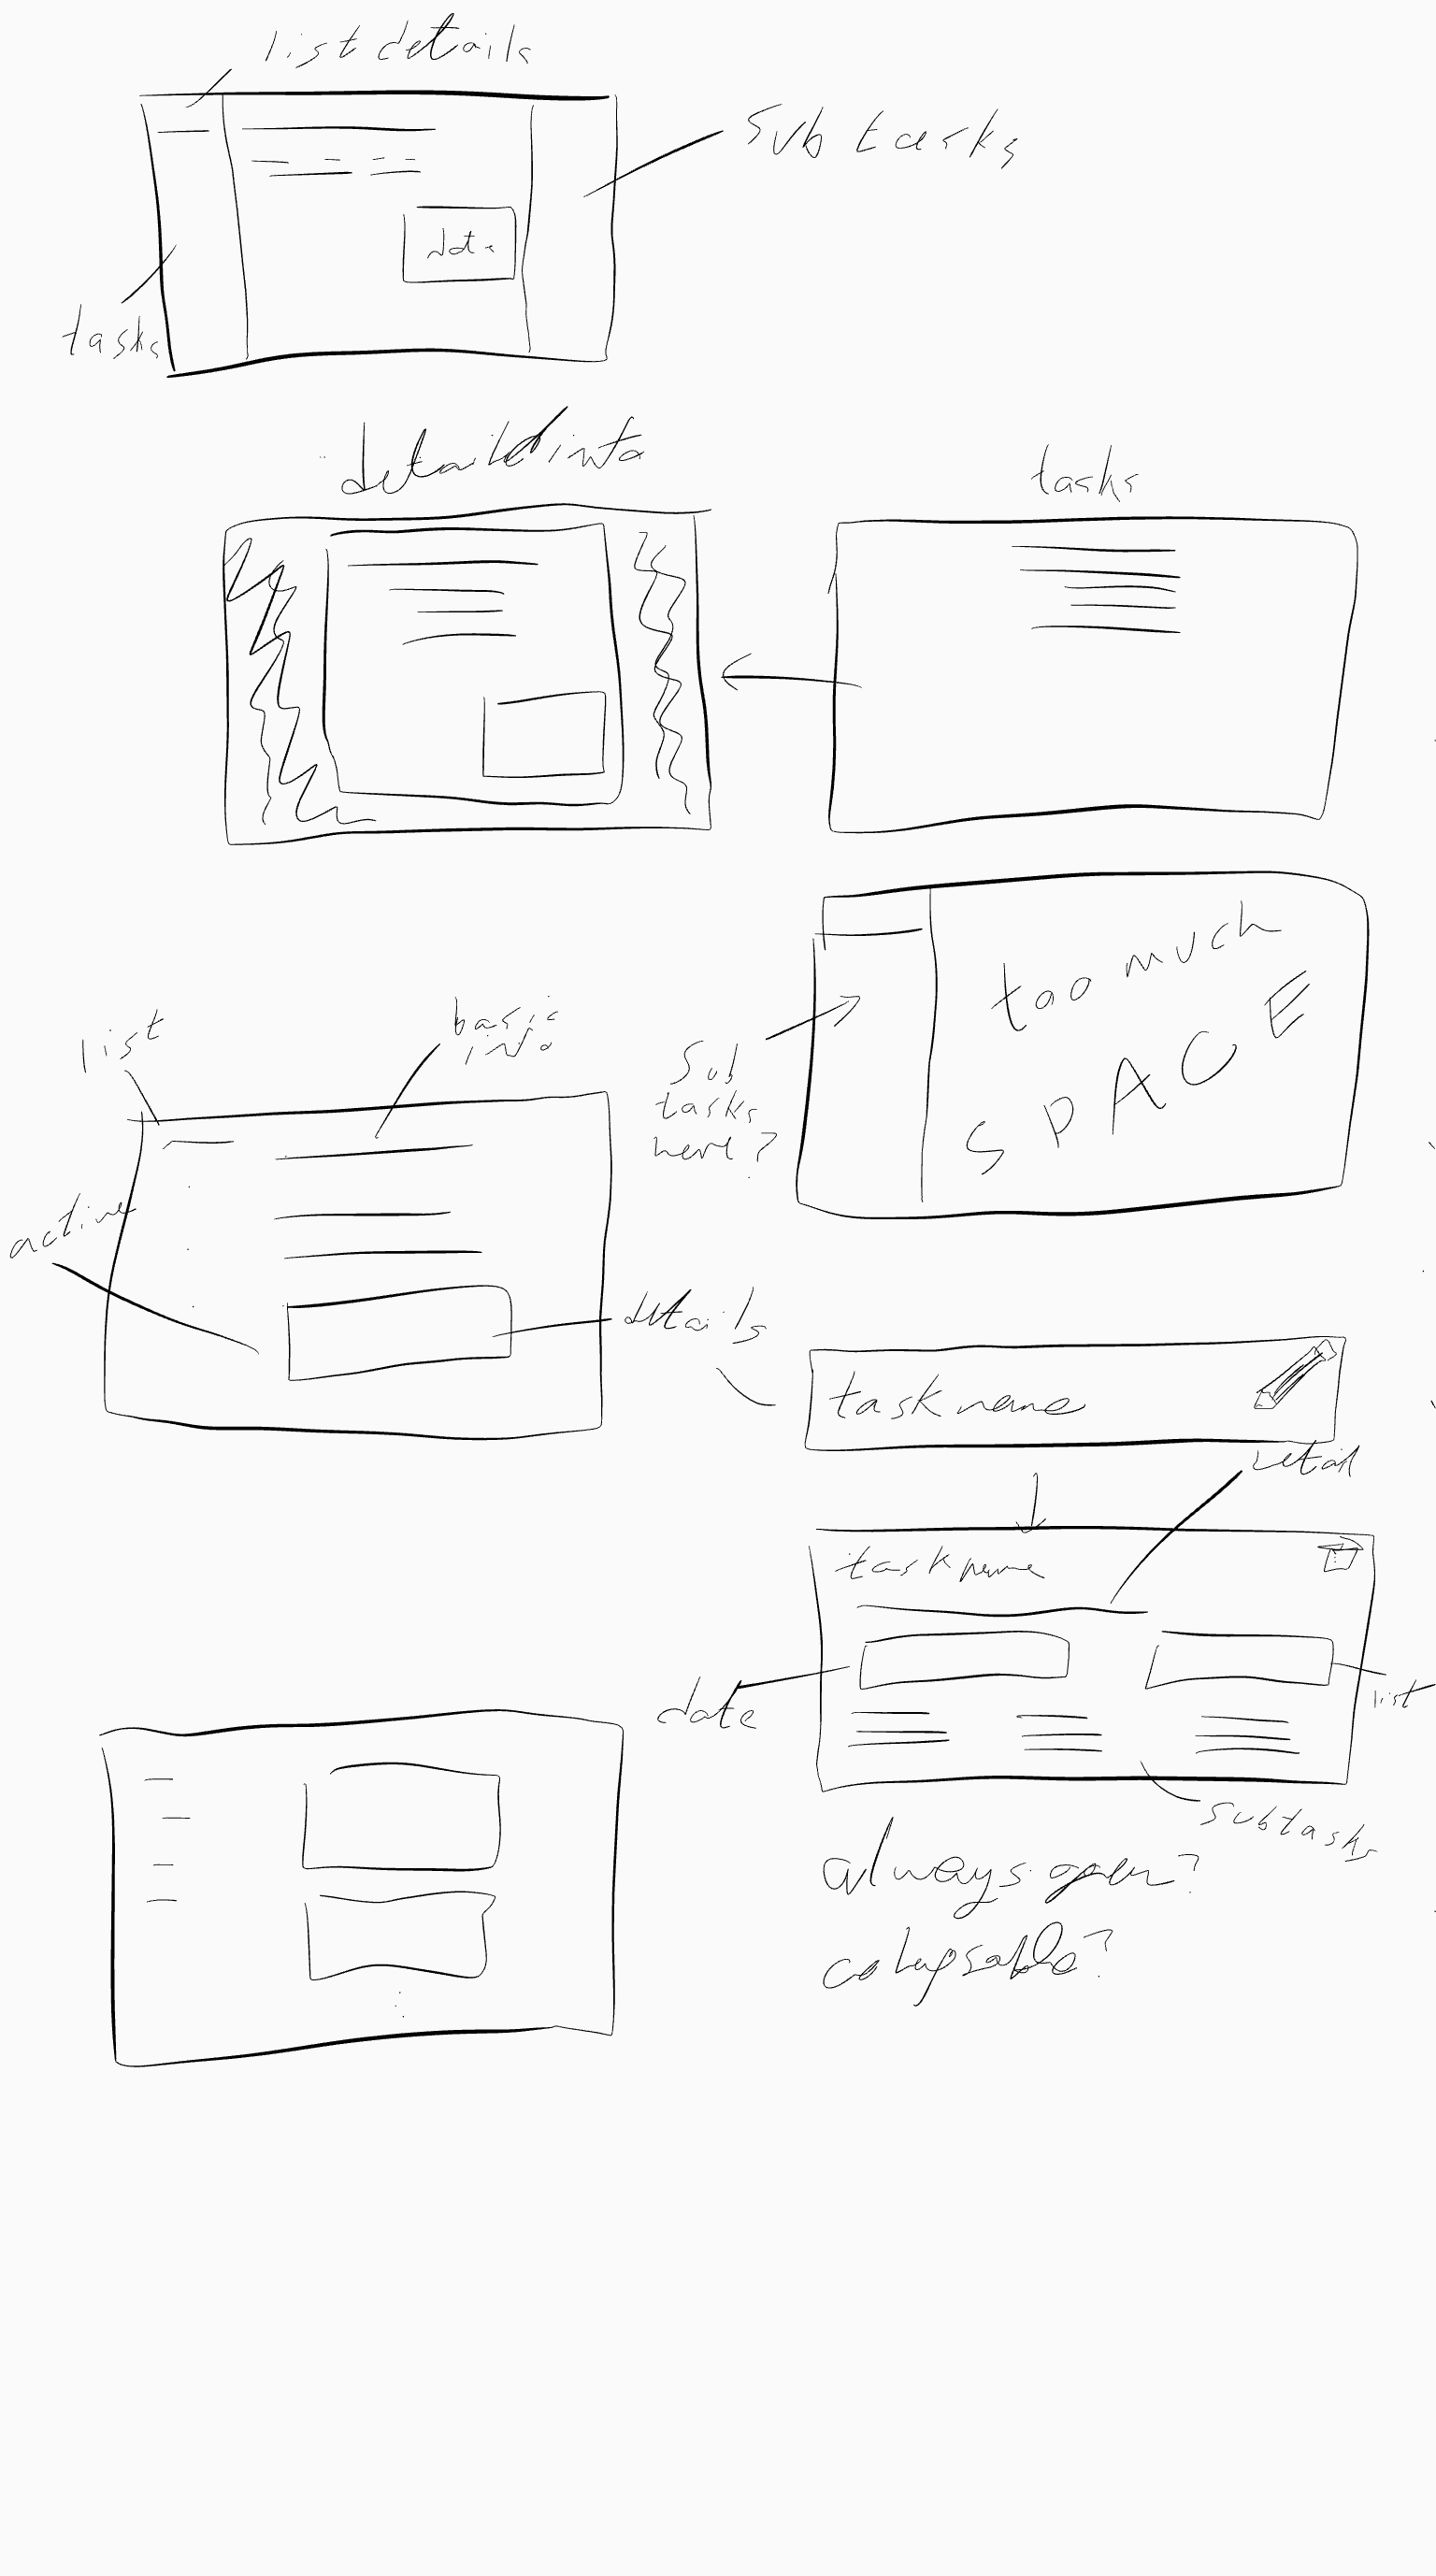 list details
sub tasks
date
tasks
detaild info
tasks
too much
SPACE
list
basic
info
sub
tasks
here?
active
details
task name
detail
task name
date
list
subtasks
always open?
colapsable?